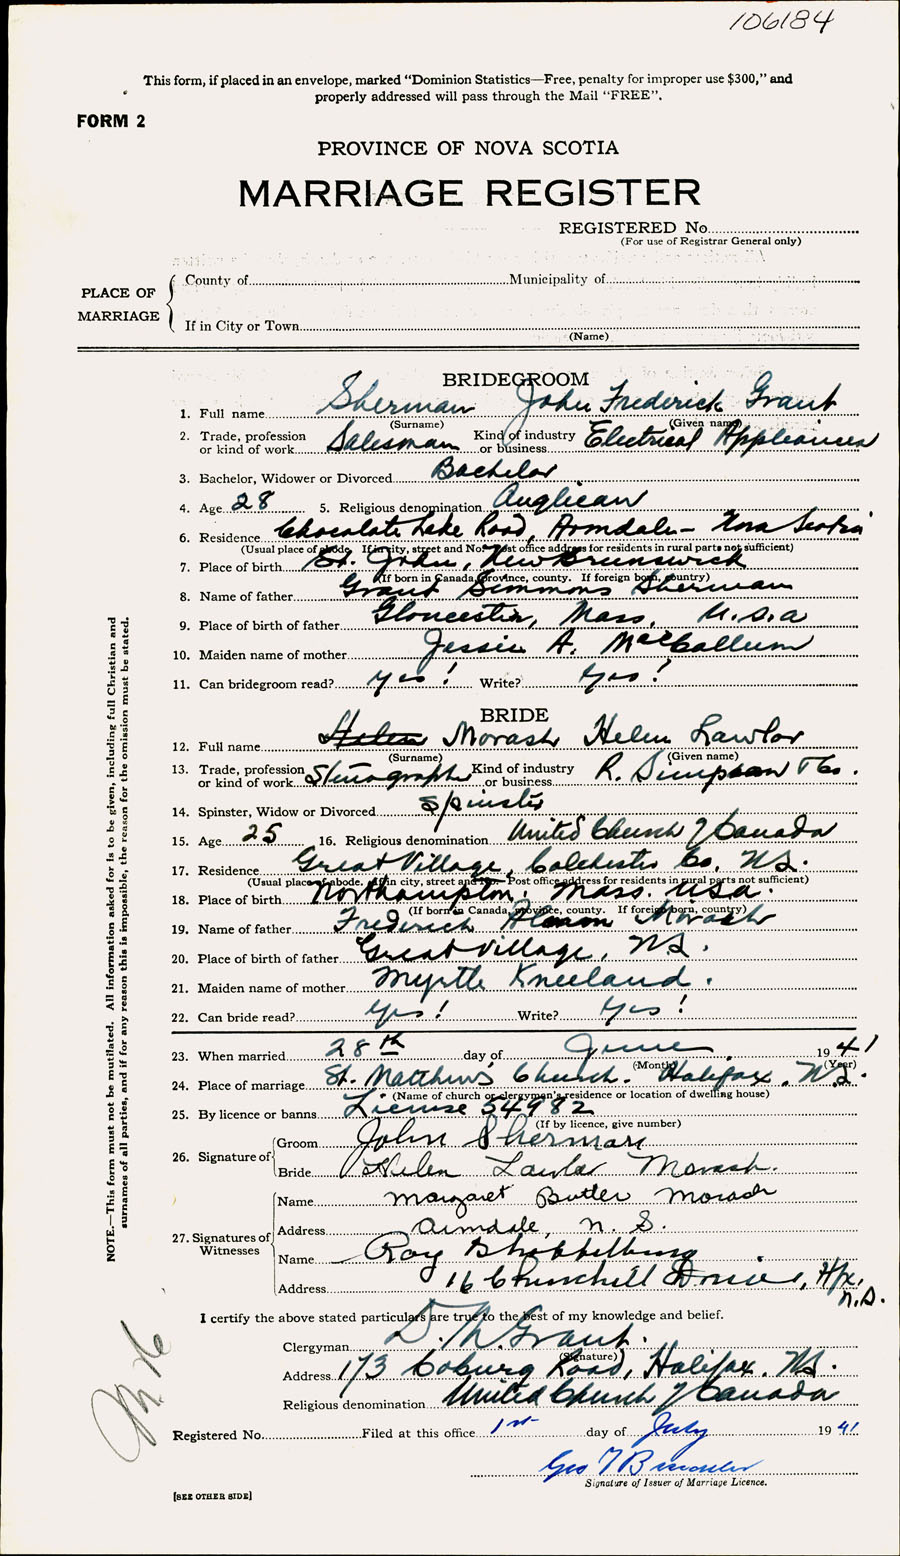 106184
This form, if placed in an envelope, marked "Dominion Statistics—Free, penalty for improper use $300," and
properly addressed will pass through the Mail "FREE".
FORM 2
PROVINCE OF NOVA SCOTIA
MARRIAGE REGISTER
REGISTERED No.
(For use of Registrar General only)
PLACE OF MARRIAGE
County of Municipality of
If in City or Town
(Name)
BRIDEGROOM
1. Full name Sherman John Frederick Grant
(Surname) (Given name)
2. Trade, profession or kind of work Salesman Kind of industry or business Electrical Appliances
3. Bachelor, Widower or Divorced Bachelor
4. Age 28 5. Religious denomination Anglican
6. Residence Chocolate Lake Road, Armdale - Nova Scotia
(Usual place of abode. If in city, street and No. Post office address for residents in rural parts not sufficient)
7. Place of birth St. John, New Brunswick
(If born in Canada, province, county. If foreign born, country)
8. Name of father Grant Simmons Sherman
9. Place of birth of father Gloucester, Mass. U.S.A
10. Maiden name of mother Jessie A. MacCallum
11. Can bridegroom read? Yes! Write? Yes!
BRIDE
12. Full name Helen Morash Helen Lawlor
(Surname) (Given name)
13. Trade, profession or kind of work Stenographer Kind of industry or business R. Simpson & Co.
14. Spinster, Widow or Divorced Spinster
15. Age 25 16. Religious denomination United Church of Canada
17. Residence Great Village, Colchester Co. N.S.
(Usual place of abode. If in city, street and No. Post office address for residents in rural parts not sufficient)
18. Place of birth Northampton, Mass. USA.
(If born in Canada, province, county. If foreign born, country)
19. Name of father Frederick Morash
20. Place of birth of father Great Village, N.S.
21. Maiden name of mother Myrtle Kneeland.
22. Can bride read? Yes! Write? Yes!
23. When married 28th day of June 1941
(Month) (Year)
24. Place of marriage St. Matthew's Church. Halifax. N.S.
(Name of church or clergyman's residence or location of dwelling house)
25. By licence or banns License 54982
(If by licence, give number)
26. Signature of Groom John Sherman
Bride Helen Lawlor Morash.
27. Signatures of Witnesses
Name Margaret Butler Morash
Address Armdale, N. S.
Name Roy
Address 16 Churchill Drive, Hfx, N.S.
I certify the above stated particulars are true to the best of my knowledge and belief.
Clergyman D. M. Grant.
(Signature)
Address 173 Coburg Road, Halifax. N.S.
Religious denomination United Church of Canada
Registered No. Filed at this office 1st day of July 1941
Geo T
Signature of Issuer of Marriage Licence.
[SEE OTHER SIDE]
NOTE.—This form must not be mutilated. All information asked for is to be given, including full Christian and
surnames of all parties, and if for any reason this is impossible, the reason for the omission must be stated.